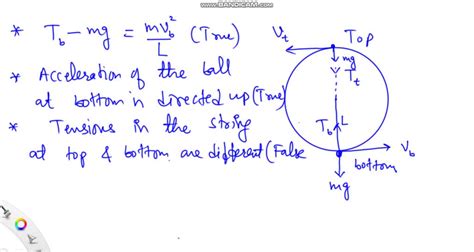 WWW.BANDICAM.COM
* T_b - mg = mv_b^2/L (True)
* Acceleration of the ball
at bottom is directed up (True)
* Tensions in the string
at top & bottom are different (False
V_t
Top
mg
T_t
T_b
L
V_b
bottom
mg